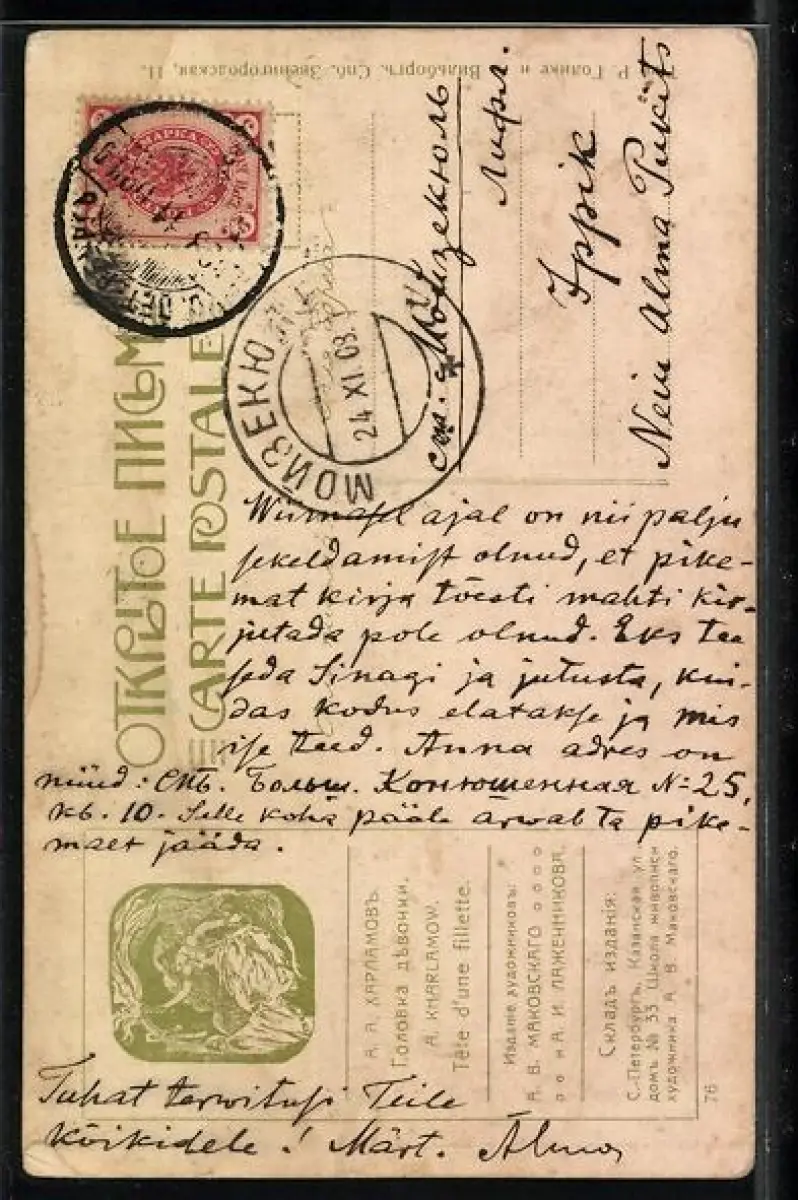 Р. Голике и Вильборгъ. Спб. Звенигородская, 11.
МАРКА
ОТКРЫТОЕ ПИСЬМО
CARTE POSTALE
МОЙЗЕКЮЛЬ
24 XI 08
ст. Мойзекюль
Лифл.
Neiu Alma
Wiimasel ajal on nii palju
sekeldamist olnud, et pike-
mat kirja tõesti mahti kir-
jutada pole olnud. Eks tee
seda Sinagi ja jutusta, kui-
das kodus elatakse ja mis
ise teed. Anna adres on
nüüd: Спб. Больш. Конюшенная № 25,
кв. 10. Selle koha pääle arwab ta pike-
malt jääda.
А. А. ХАРЛАМОВЪ.
Головка дѣвочки.
A. KHARLAMOW.
Tête d'une fillette.
Изданіе художниковъ:
А. В. МАКОВСКАГО
и А. И. ЛАЖЕННИКОВА.
Складъ изданія:
С.-Петербургъ, Казанская ул
домъ № 33 Школа живописи
художника А. В. Маковскаго.
76
Tuhat terwitusi Teile
kõikidele! Märt. Alma